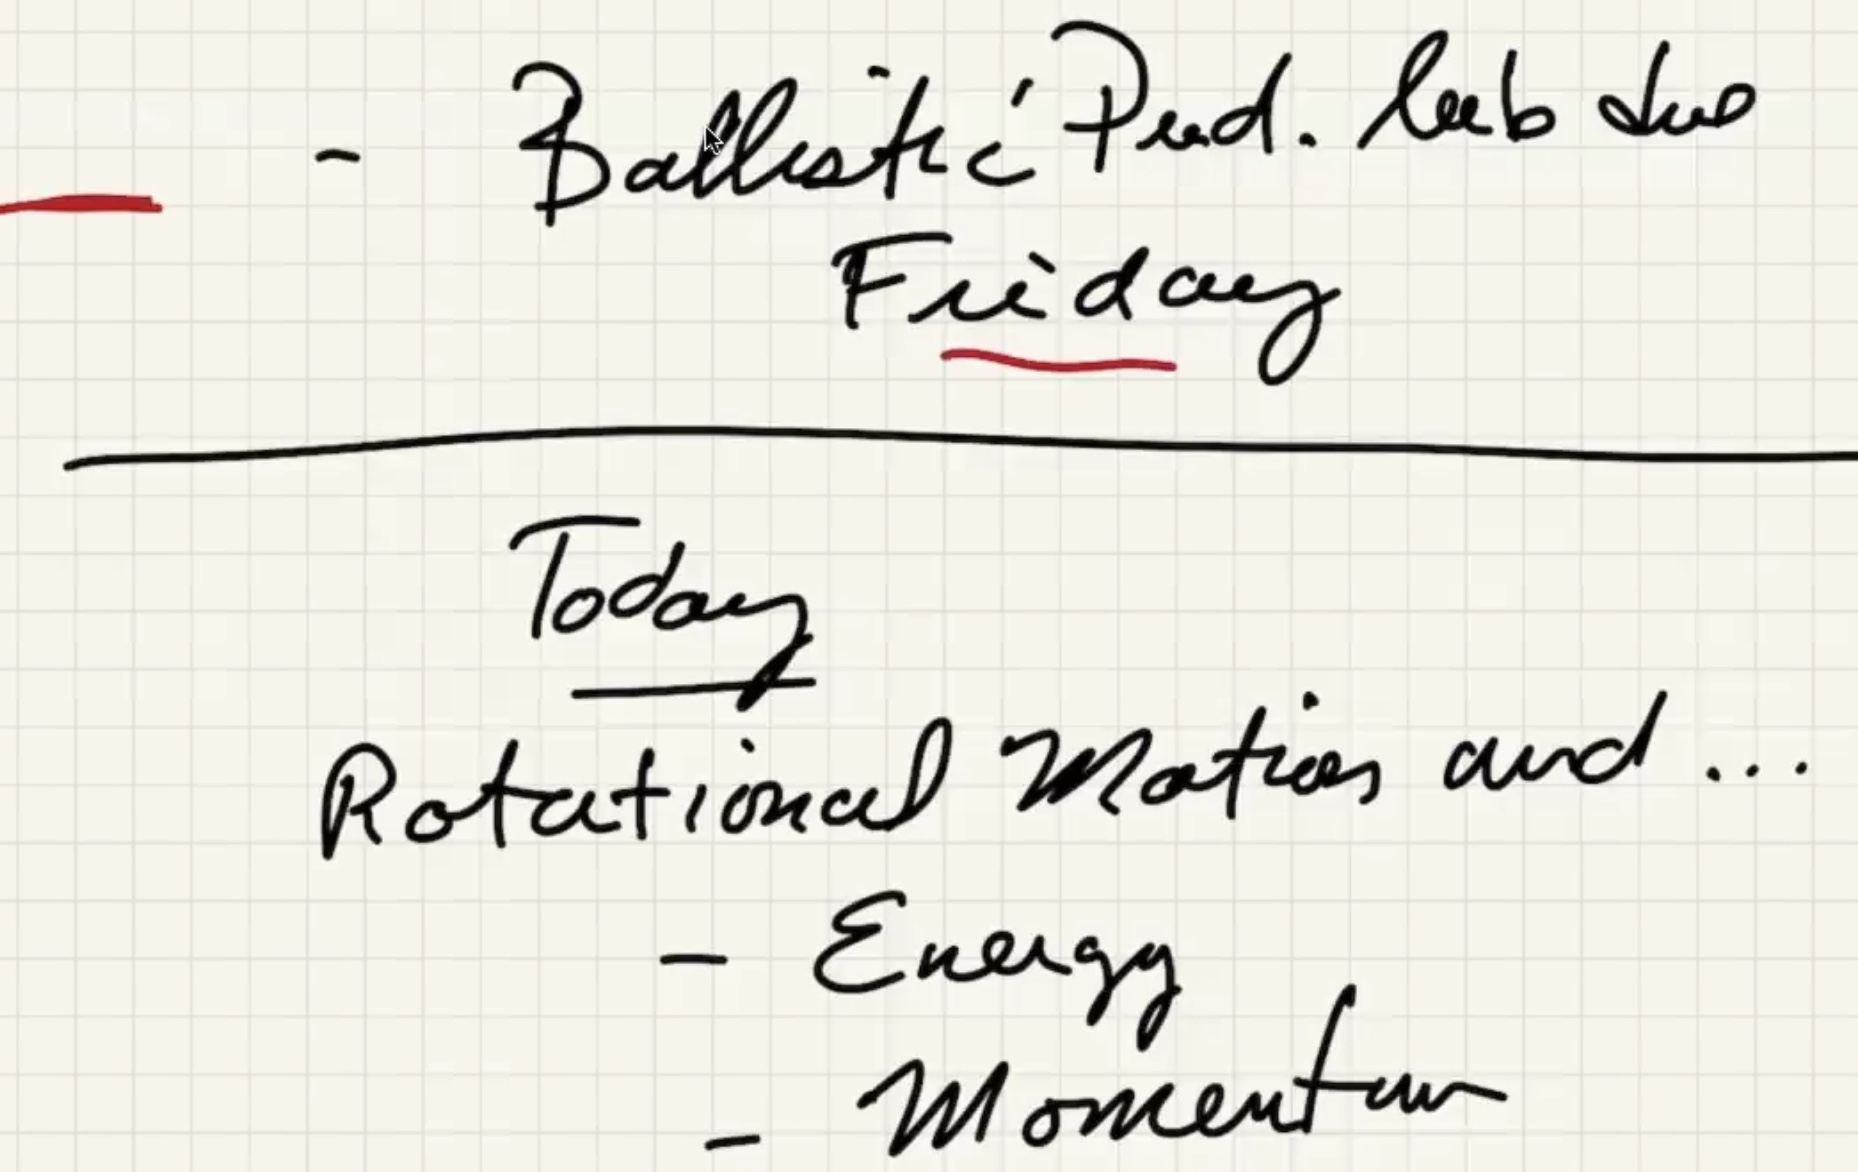 - Ballistic Pend. lab due
Friday
Today
Rotational Motion and ...
- Energy
- Momentum